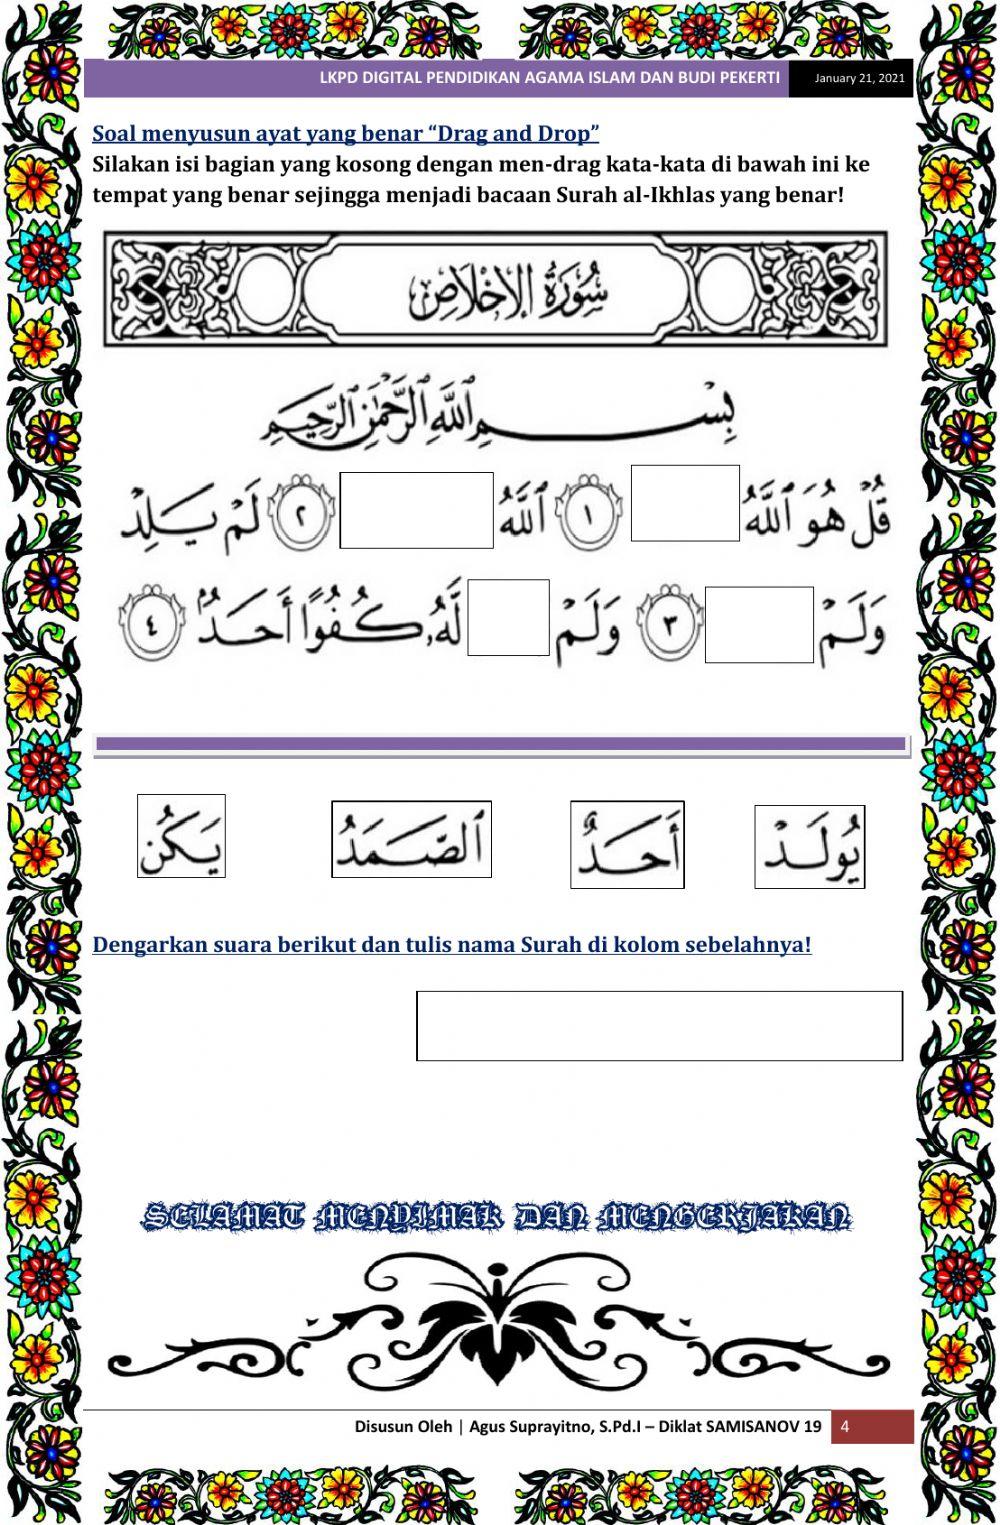 LKPD DIGITAL PENDIDIKAN AGAMA ISLAM DAN BUDI PEKERTI January 21, 2021
Soal menyusun ayat yang benar “Drag and Drop”
Silakan isi bagian yang kosong dengan men-drag kata-kata di bawah ini ke
tempat yang benar sejingga menjadi bacaan Surah al-Ikhlas yang benar!
سُورَةُ الإِخْلَاصِ
بِسْمِ ٱللَّهِ ٱلرَّحْمَٰنِ ٱلرَّحِيمِ
قُلْ هُوَ ٱللَّهُ ١ ٱللَّهُ ٢ لَمْ يَلِدْ
وَلَمْ ٣ وَلَمْ لَّهُۥ كُفُوًا أَحَدٌۢ ٤
يُولَدْ أَحَدٌ ٱلصَّمَدُ يَكُن
Dengarkan suara berikut dan tulis nama Surah di kolom sebelahnya!
SELAMAT MENYIMAK DAN MENGERJAKAN
Disusun Oleh | Agus Suprayitno, S.Pd.I – Diklat SAMISANOV 19 4